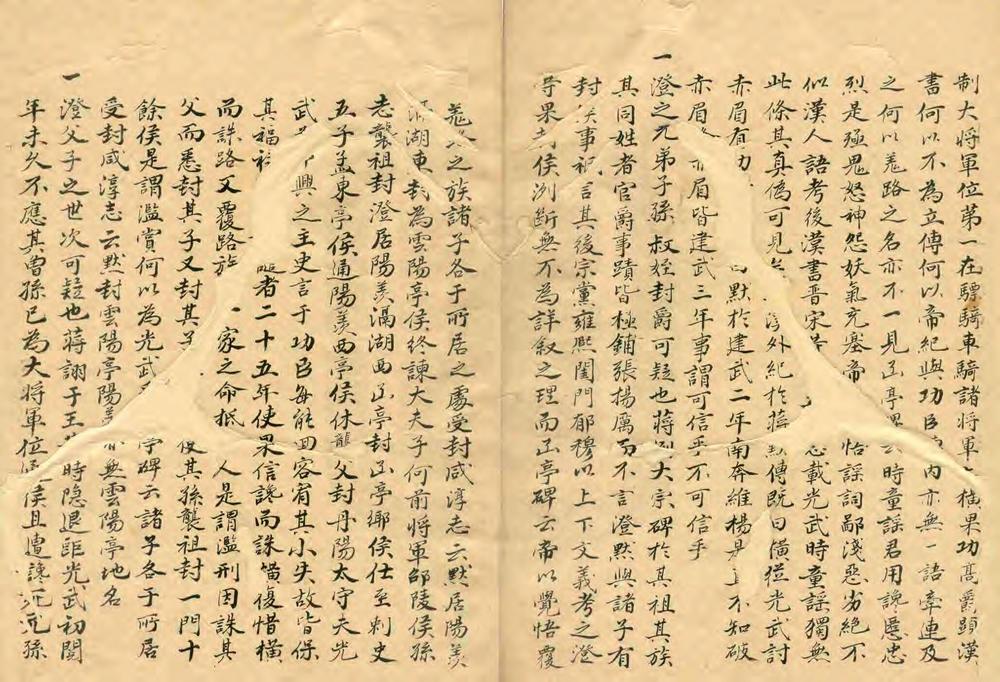 制大將軍位第一在驃騎車騎諸將軍果功髙爵顯漢
書何以不為立傳何以帝紀與功臣内亦無一語牽連及
之何以羗路之名亦不一見亭云時童謡君用讒慝忠
烈是殛鬼怒神怨妖氣充塞帝恪謡詞鄙淺惡劣絶不
似漢人語考後漢書晋宋載光武時童謡獨無
此條其真偽可見外紀於傳既曰横從光武討
赤眉有功曰默於建武二年南奔維楊不知破
赤眉眉皆建武三年事謂可信乎不可信乎
一澄之兄弟子孫叔姪封爵可疑也蔣大宗碑於其祖其族
其同姓者官爵事蹟皆極鋪張揚厲而不言澄默與諸子有
封事祝言其後宗黨雍熙閨門郁穆以上下文義考之澄
等果封侯列斷無不為詳叙之理而亭碑云帝以覺悟覆
之族諸子各于所居之處受封咸淳志云默居陽羨
湖東封為雲陽亭侯終諫大夫子何前將軍邵陵侯孫
志襲祖封澄居陽羨滆湖西亭封亭鄉侯仕至刺史
五子孟東亭侯通陽羨西亭侯休襲父封丹陽太守夫光
武興之主史言于功臣每能回容宥其小失故皆保
其福者二十五年使果信讒而誅横復惜横
而誅路又覆路族一家之命抵人是謂濫刑因誅其
父而悉封其子又封其子使其孫襲祖封一門十
餘侯是謂濫賞何以為光武亭碑云諸子各于所居
受封咸淳志云默封雲陽亭陽羨亦無雲陽亭地名
一澄父子之世次可疑也蔣詡于王時隱退距光武初閲
年未久不應其曾孫已為大將軍位侯且遭讒死元孫